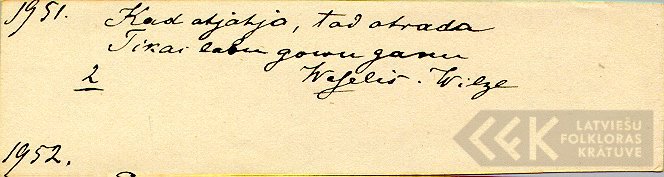 1951. Kad atjahja, tad atrada
Tikai labu gowu ganu
2 Weselis - Wilze
1952.
LATVIEŠU
FOLKLORAS
KRĀTUVE